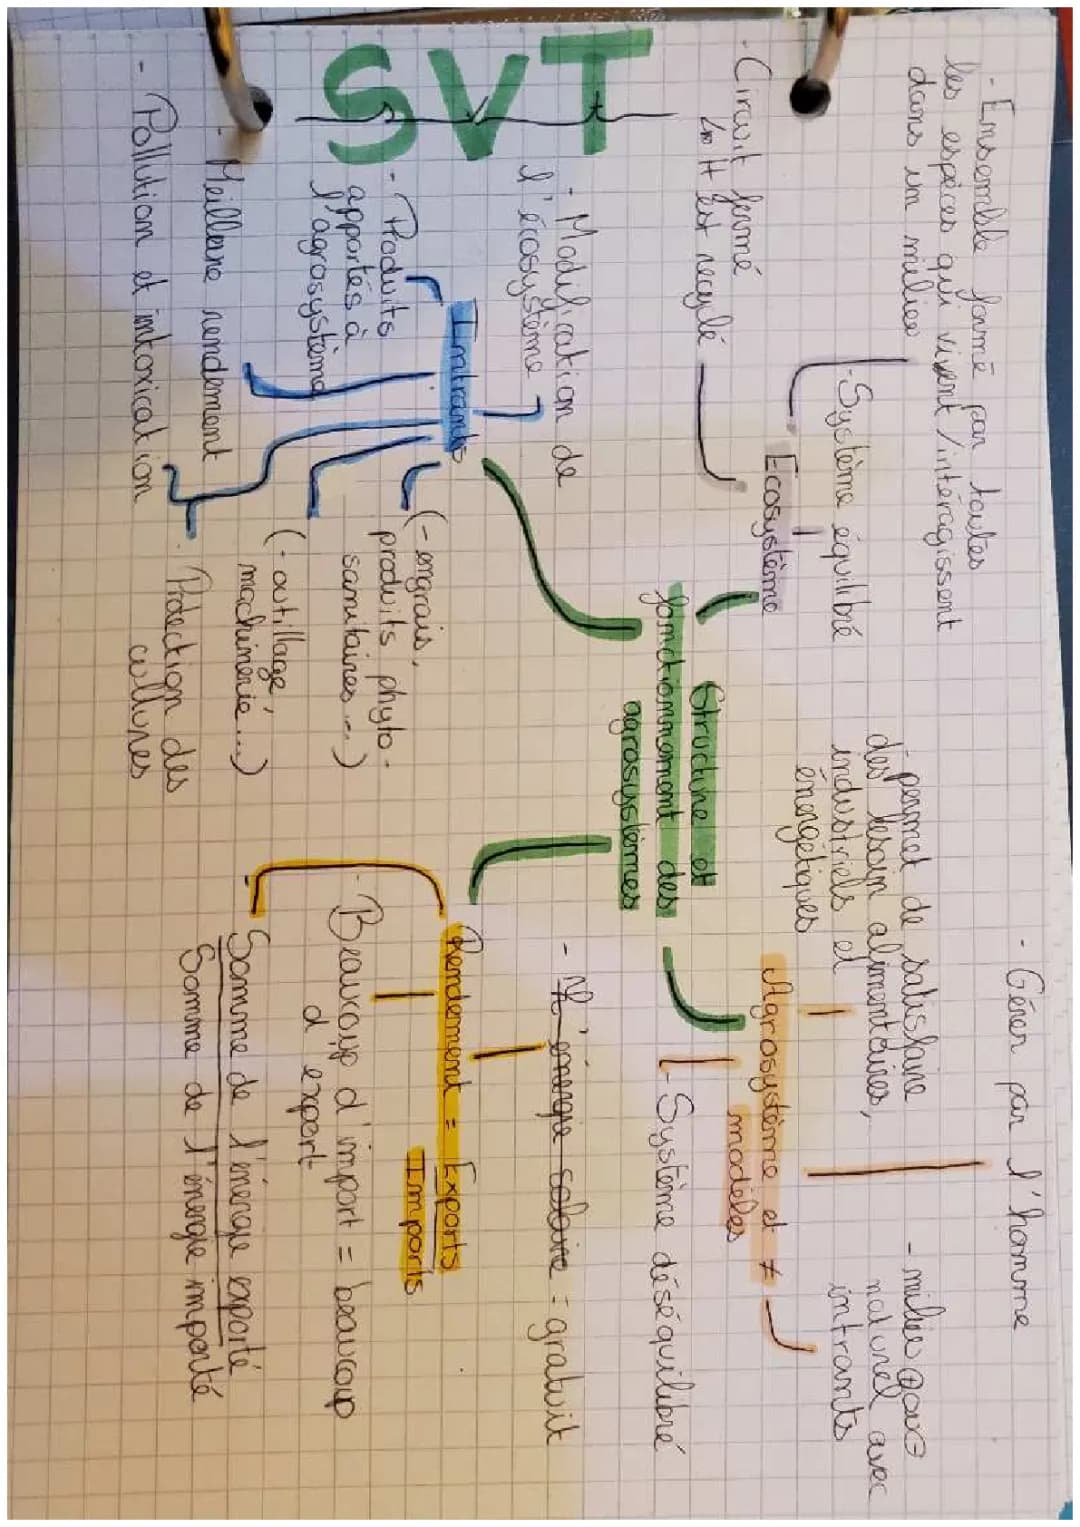 SVT
Structure et
fonctionnement des
agrosystèmes
Ecosystème
- Ensemble formé par toutes
les espèces qui vivent / intéragissent
dans un milieu
- Système équilibré
- Circuit fermé
↳ H est recyclé
Agrosystème et ≠
modèles
- permet de satisfaire
des besoin alimentaires,
industriels et
énergétiques
- Gérer par l'homme
- milieu ⊕ ou ⊖
naturel avec
intrants
- Système déséquilibré
Intrants
- Modification de
l'écosystème
- Produits
apportés à
l'agrosystème
(- engrais,
produits phyto-
sanitaires ...)
(- outillage,
machinerie ...)
- Meilleure rendement
- Protection des
cultures
- Pollution et intoxication
Rendement = Exports
Imports
- L'énergie solaire = gratuit
- Beaucoup d'import = beaucoup
d'export
Somme de l'énergie exporté
Somme de l'énergie importé